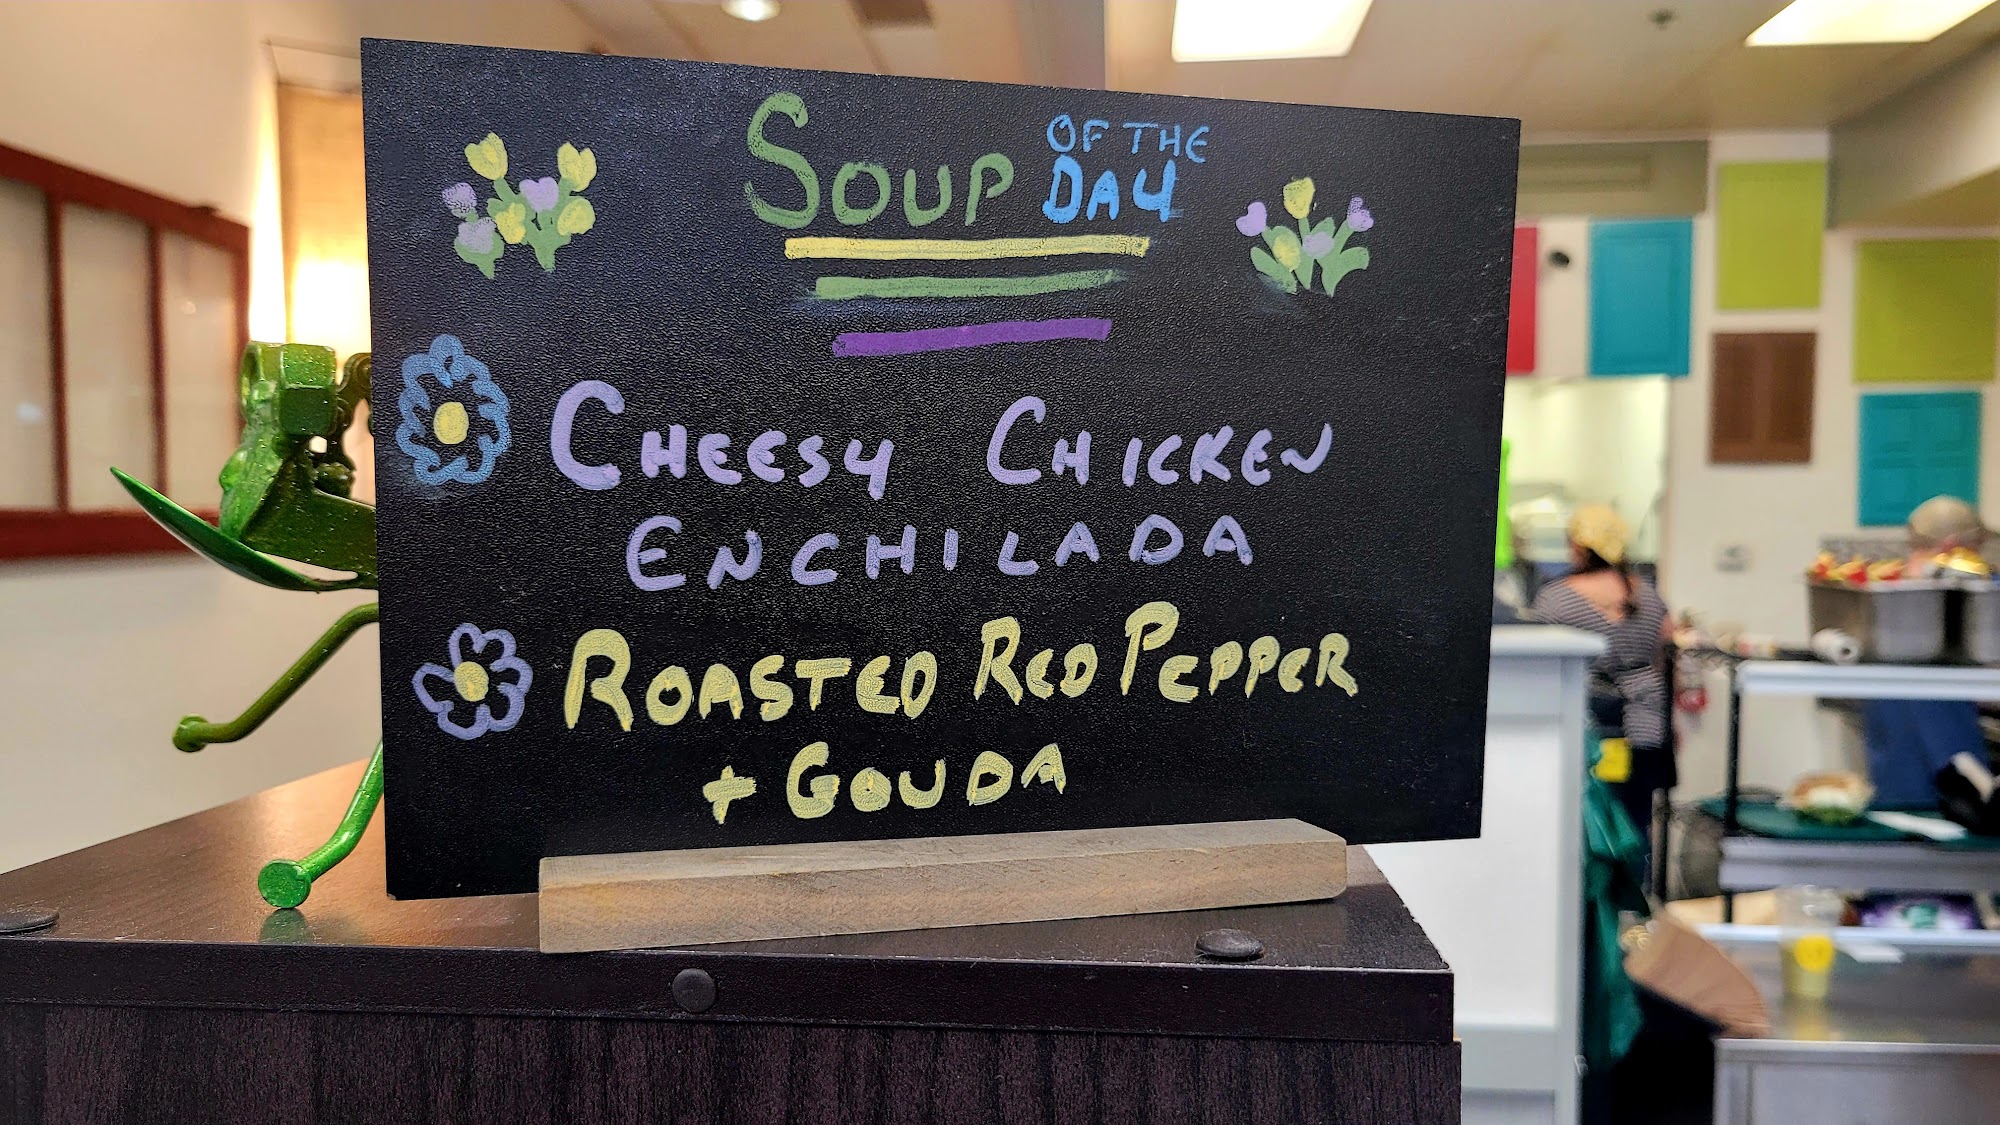 SOUP OF THE DAY
CHEESY CHICKEN
ENCHILADA
ROASTED RED PEPPER
+ GOUDA